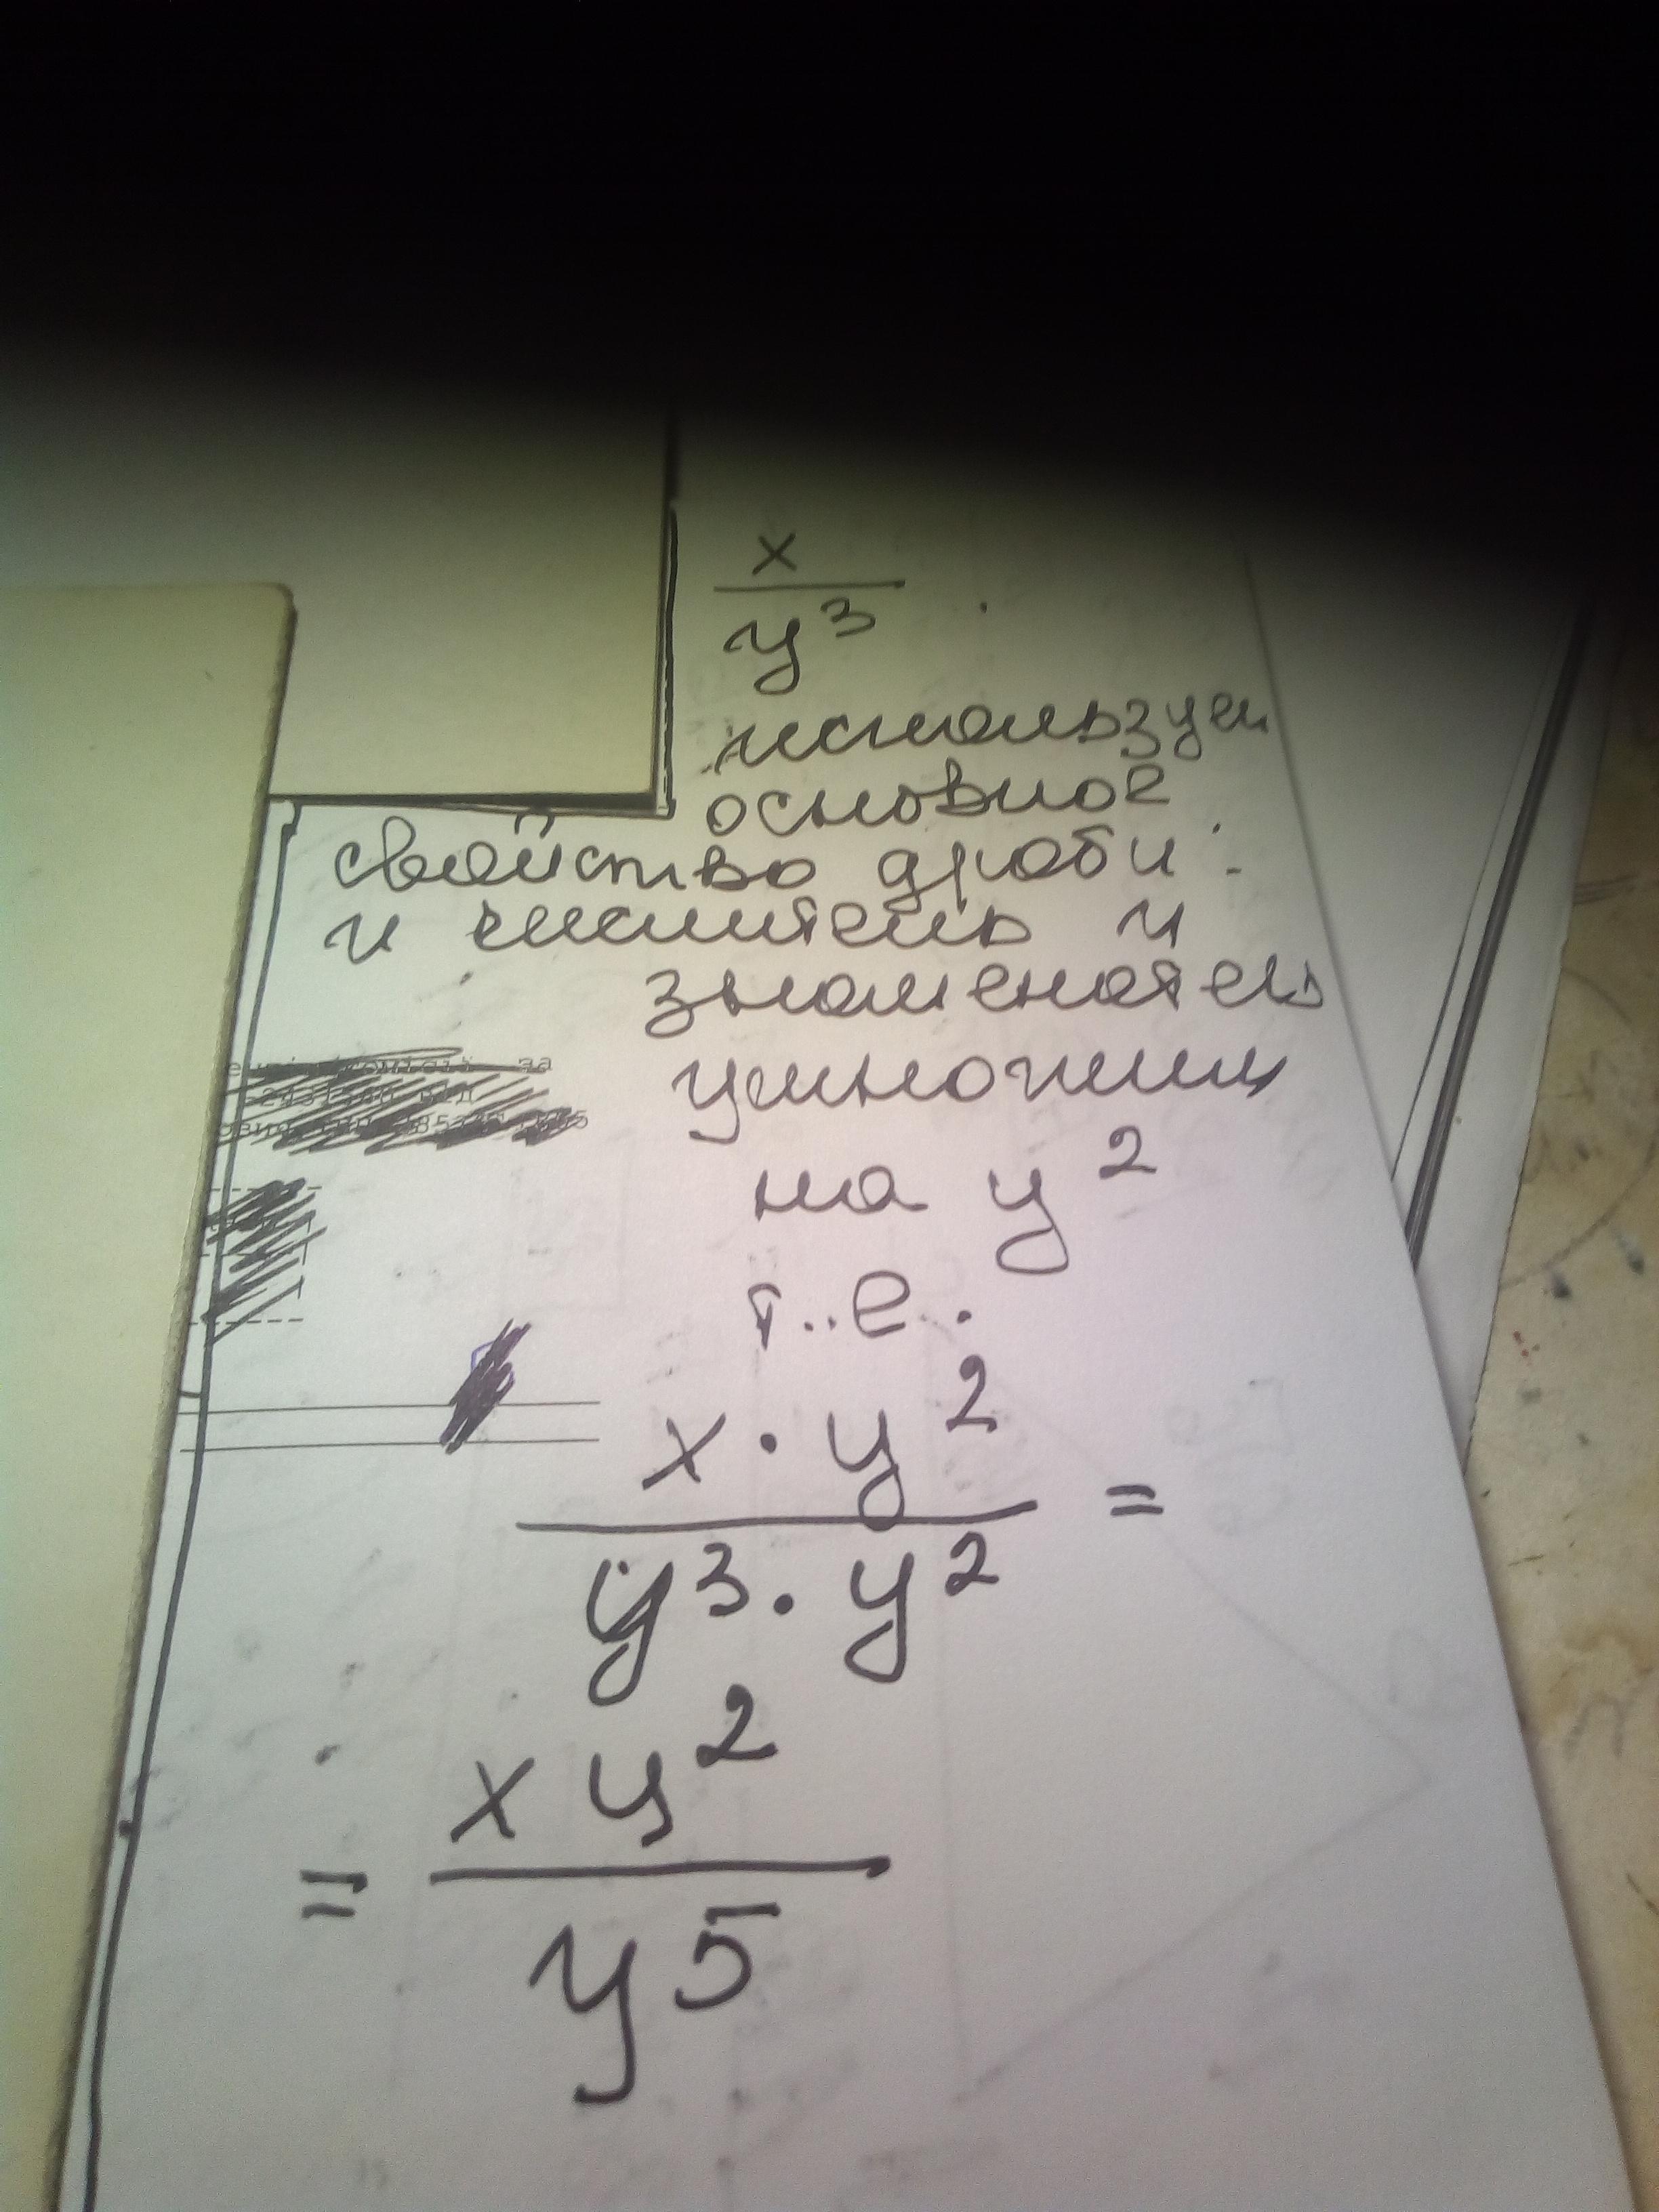 x
y³
используем
основное
свойство дроби:
и числитель и
знаменатель
умножим
на y²
т.е.
x · y² =
y³ · y²
= xy²
y5
за